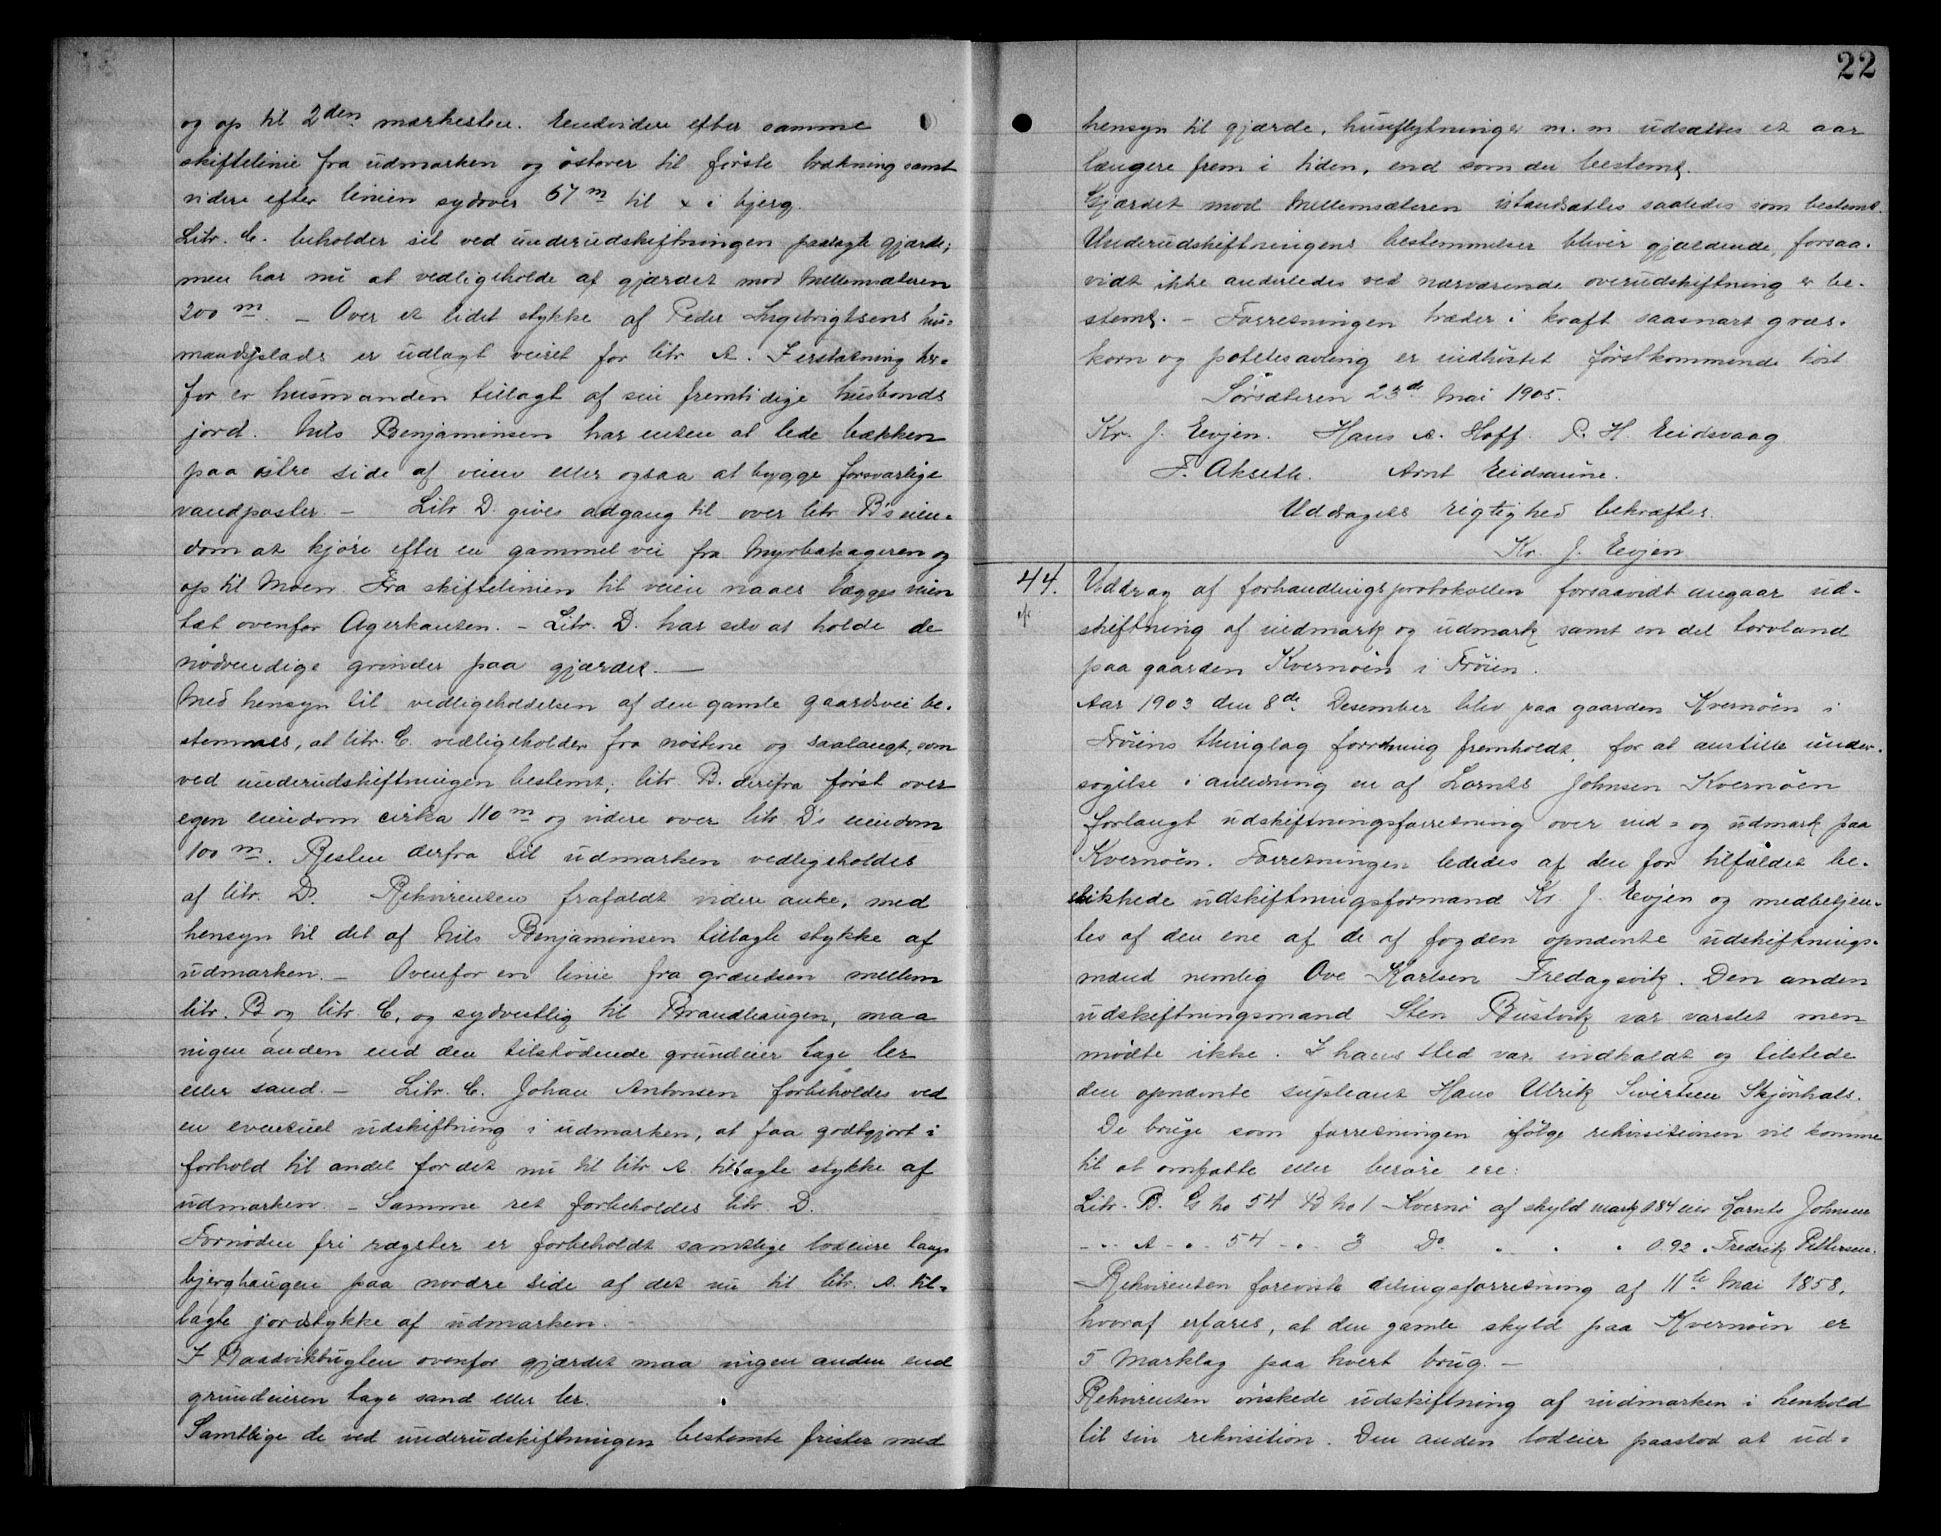 og op til 2den merkesten. Eendvidere efter samme
skiftelinie fra udmarken og østover til første brækning samt
videre efter linien sydover 67 m til x i bjerg.
Litr. C. beholder sit ved underudskiftningen paalagte gjærde;
men har nu at vedligeholde af gjærdet mod Mellemsæteren
200 m. - Over et lidet stykke af Peder Ingebrigtsens hus-
mandsplads er udlagt veiret for litr. A. I erstatning her-
for er husmanden tillagt af sin fremtidige husbonds
jord. Nils Benjaminsen har enten at lede bækken
paa østre side af veien eller ogsaa at bygge forsvarlige
vandposter. - Litr. D. gives adgang til over litr. B's eien-
dom at kjøre efter en gammel vei fra Myrbakageren og
op til Moen. Fra skiftelinien til veien naaes lægges veien
tæt ovenfor Agerkanten. - Litr. D. har selv at holde de
nødvendige grinder paa gjærdet. -
Med hensyn til vedligeholdelsen af den gamle gaardsvei be-
stemmes, at litr. C. vedligeholder fra nøstene og saalangt, som
ved underudskiftningen bestemt; litr. B. derifra først over
egen eiendom cirka 110 m og videre over litr. D's eiendom
100 m. Resten derfra til udmarken vedligeholdes
af litr. D. Rekvirenten frafaldt videre anke, med
hensyn til det af Nils Benjaminsen tillagte stykke af
udmarken. - Ovenfor en linie fra grændsen mellem
litr. B og litr C, og sydvestlig til Brandhaugen, maa
ingen anden end den tilstødende grundeier tage ler
eller sand. - Litr. C. Johan Antonsen forbeholdes ved
en eventuel udskiftning i udmarken, at faa godtgjort i
forhold til andel for det nu til litr A. tillagte stykke af
udmarken. - Samme ret forbeholdes litr. D.
Fornøden fri rægster er forbeholdt samtlige lodeiere langs
bjerghaugen paa nordre side af det nu til litr. A. til-
lagte jordstykke af udmarken. -
I Baadvikbugten ovenfor gjærdet maa ingen anden end
grundeieren tage sand eller ler.
Samtlige de ved underudskiftningen bestemte frister med
22
hensyn til gjærde, husflytninger m. m udsættes et aar
længere frem i tiden, end som der bestemt.
Gjærdet mod Mellemsæteren istandsættes saaledes som bestemt.
Underudskiftningens bestemmelser bliver gjældende, forsaa-
vidt ikke anderledes ved nærværende overudskiftning er be-
stemt. - Forretningen træder i kraft saasnart græs-
korn og potetesavling er indhøstet førstkommende høst
Sørsæteren 23de Mai 1905.
Kr. J. Evjen. Hans A. Hoff. P. H. Eidsvaag
F. Akseth. Arnt Eidsaune.
Uddragets rigtighed bekræftes.
Kr. J. Evjen
44. Uddrag af forhandlingsprotokollen forsaavidt angaar ud-
skiftning af indmark og udmark samt en del torvland
paa gaarden Kvernøen i Frøien.
Aar 1903 den 8de Desember blev paa gaarden Kvernøen i
Frøiens thinglag forretning fremholdt, for at anstille under-
søgelse i anledning en af Lornts Johnsen Kvernøen
forlangt udskiftningsforretning over ind- og udmark paa
Kvernøen. Forretningen lededes af den for tilfældet be-
skikkede udskiftningsformand Kr J. Evjen og medbetjen-
tes af den ene af de af fogden opnævnte udskiftnings-
mænd nemlig Ove Karlsen Fredagsvik. Den anden
udskiftningsmand Sten Bustvik var varslet men
mødte ikke. I hans sted var indkaldt og tilstede
den opnævnte supleant Hans Ulrik Sivertsen Skjønhals.
De bruge som forretningen ifølge rekvisitionen vil komme
til at omfatte eller berøre ere:
Litr. B. G no 54 B no 1 Kvernø af skyld mark 0.84 eier Lornts Johnsen
- " - A - " - 54 - " - 3 Do " " " 0.92 " Fredrik Pettersen.
Rekvirenten foreviste delingsforretning af 11te Mai 1858,
hvoraf erfares, at den gamle skyld paa Kvernøen er
5 Marklag paa hvert brug. -
Rekvirenten ønskede udskiftning af indmarken i henhold
til sin rekvisition. Den anden lodeier paastod at ud-